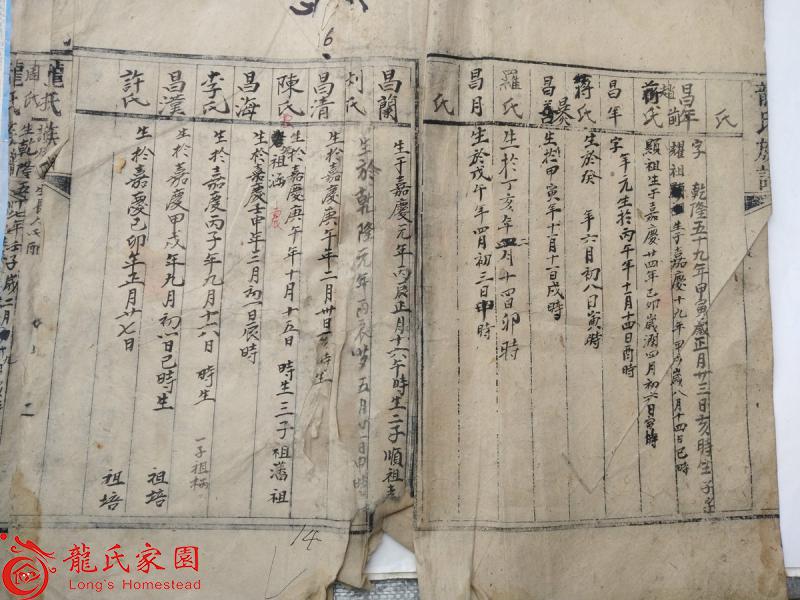 龍氏族譜
氏
字 乾隆五十九年甲寅歲正月廿三日亥時生子
昌年
耀祖 生于嘉慶十九年甲戌歲八月十四日巳時
蔣氏
顯祖生于嘉慶廿四年己卯歲潤四月初六日 時
昌年
字年元生於丙午年十一月十四日酉時
蔣氏
生於癸 年六月初八日寅時
昌
生於甲寅年十一月十一日戌時
羅氏
生於丁亥年 月十四日卯時
昌月
生於戊午年四月初三日申時
氏
昌蘭
生于嘉慶元年丙辰正月十六午時生二子順祖
刘氏
生於乾隆元年丙辰岁五月廿一日申時
昌清
生於嘉慶庚午年二月卅日 時生
陳氏
生於嘉慶庚午年十月十五日 時生三子祖藩祖
祖涵
昌海
生於嘉慶壬申年三月初一日辰時
李氏
生於嘉慶丙子年九月十六日 時生 一子祖
昌漢
生於嘉慶甲戌年九月初一日巳時生 祖培
許氏
生於嘉慶己卯年正月廿七日 祖培
龍氏族
周氏
生乾隆五十七年壬子歲二月
6
14
龍氏家園
Long's Homestead